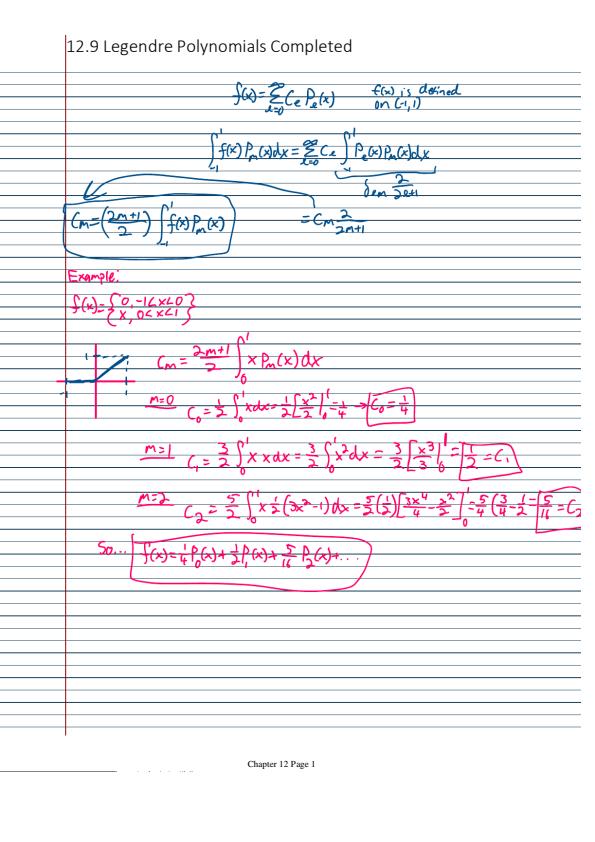 12.9 Legendre Polynomials Completed
f(x)=∑_{ℓ=0}^{∞} C_ℓ P_ℓ(x) f(x) is defined on (-1,1)
∫_{-1}^{1} f(x) P_m(x)dx = ∑_{ℓ=0}^{∞} C_ℓ ∫_{-1}^{1} P_ℓ(x)P_m(x)dx
δ_{ℓm} 2/(2ℓ+1)
C_m=((2m+1)/2) ∫_{-1}^{1} f(x)P_m(x) = C_m 2/(2m+1)
Example:
f(x)={0, -1<x<0}
{x, 0<x<1}
1
C_m = (2m+1)/2 ∫_0^1 x P_m(x) dx
m=0 C_0 = 1/2 ∫_0^1 xdx = 1/2 [x²/2]_0^1 = 1/4 → C_0 = 1/4
m=1 C_1 = 3/2 ∫_0^1 x x dx = 3/2 ∫_0^1 x² dx = 3/2 [x³/3]_0^1 = 1/2 = C_1
m=2 C_2 = 5/2 ∫_0^1 x 1/2 (3x²-1) dx = 5/2 (1/2) [3x⁴/4 - x²/2]_0^1 = 5/4 (3/4 - 1/2 = 5/16 = C_2
So... f(x) = 1/4 P_0(x) + 1/2 P_1(x) + 5/16 P_2(x) + ...
Chapter 12 Page 1